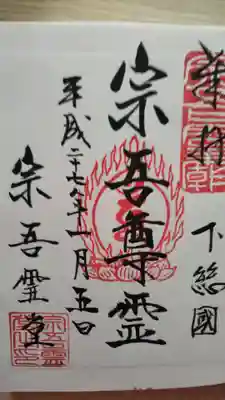 奉拝
下総國
宗吾尊霊
平成二十七年十一月五日
宗吾霊堂